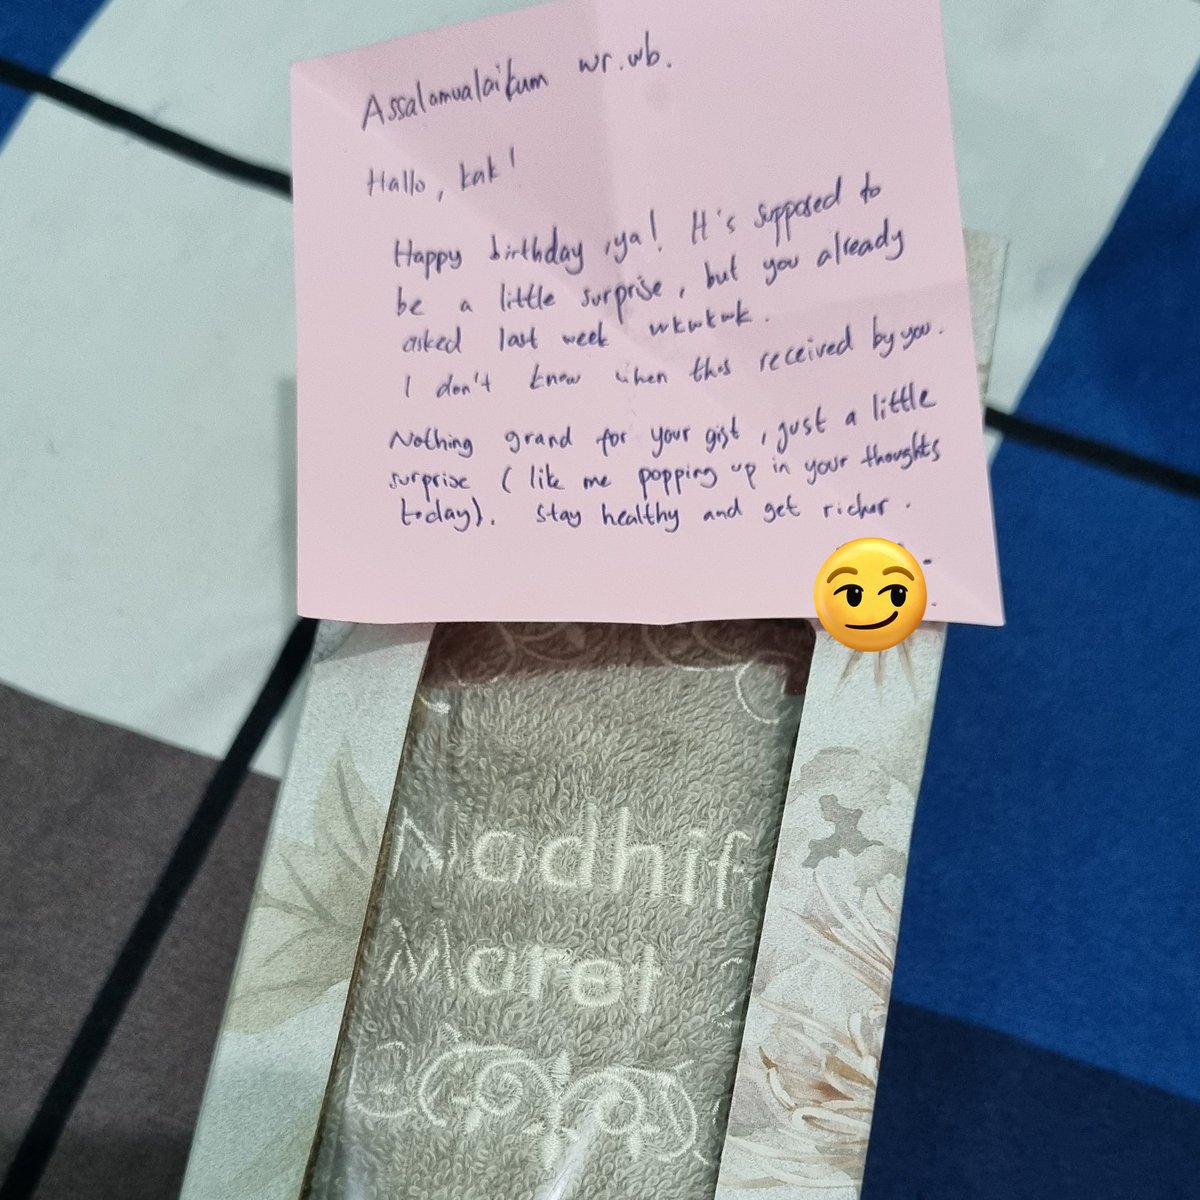 Assalamualaikum wr.wb.
Hallo, kak!
Happy birthday, ya! It's supposed to
be a little surprise, but you already
asked last week wkwkwk.
I don't know when this received by you.
Nothing grand for your gift, just a little
surprise (like me popping up in your thoughts
today). Stay healthy and get richer.
Nadhif
Maret